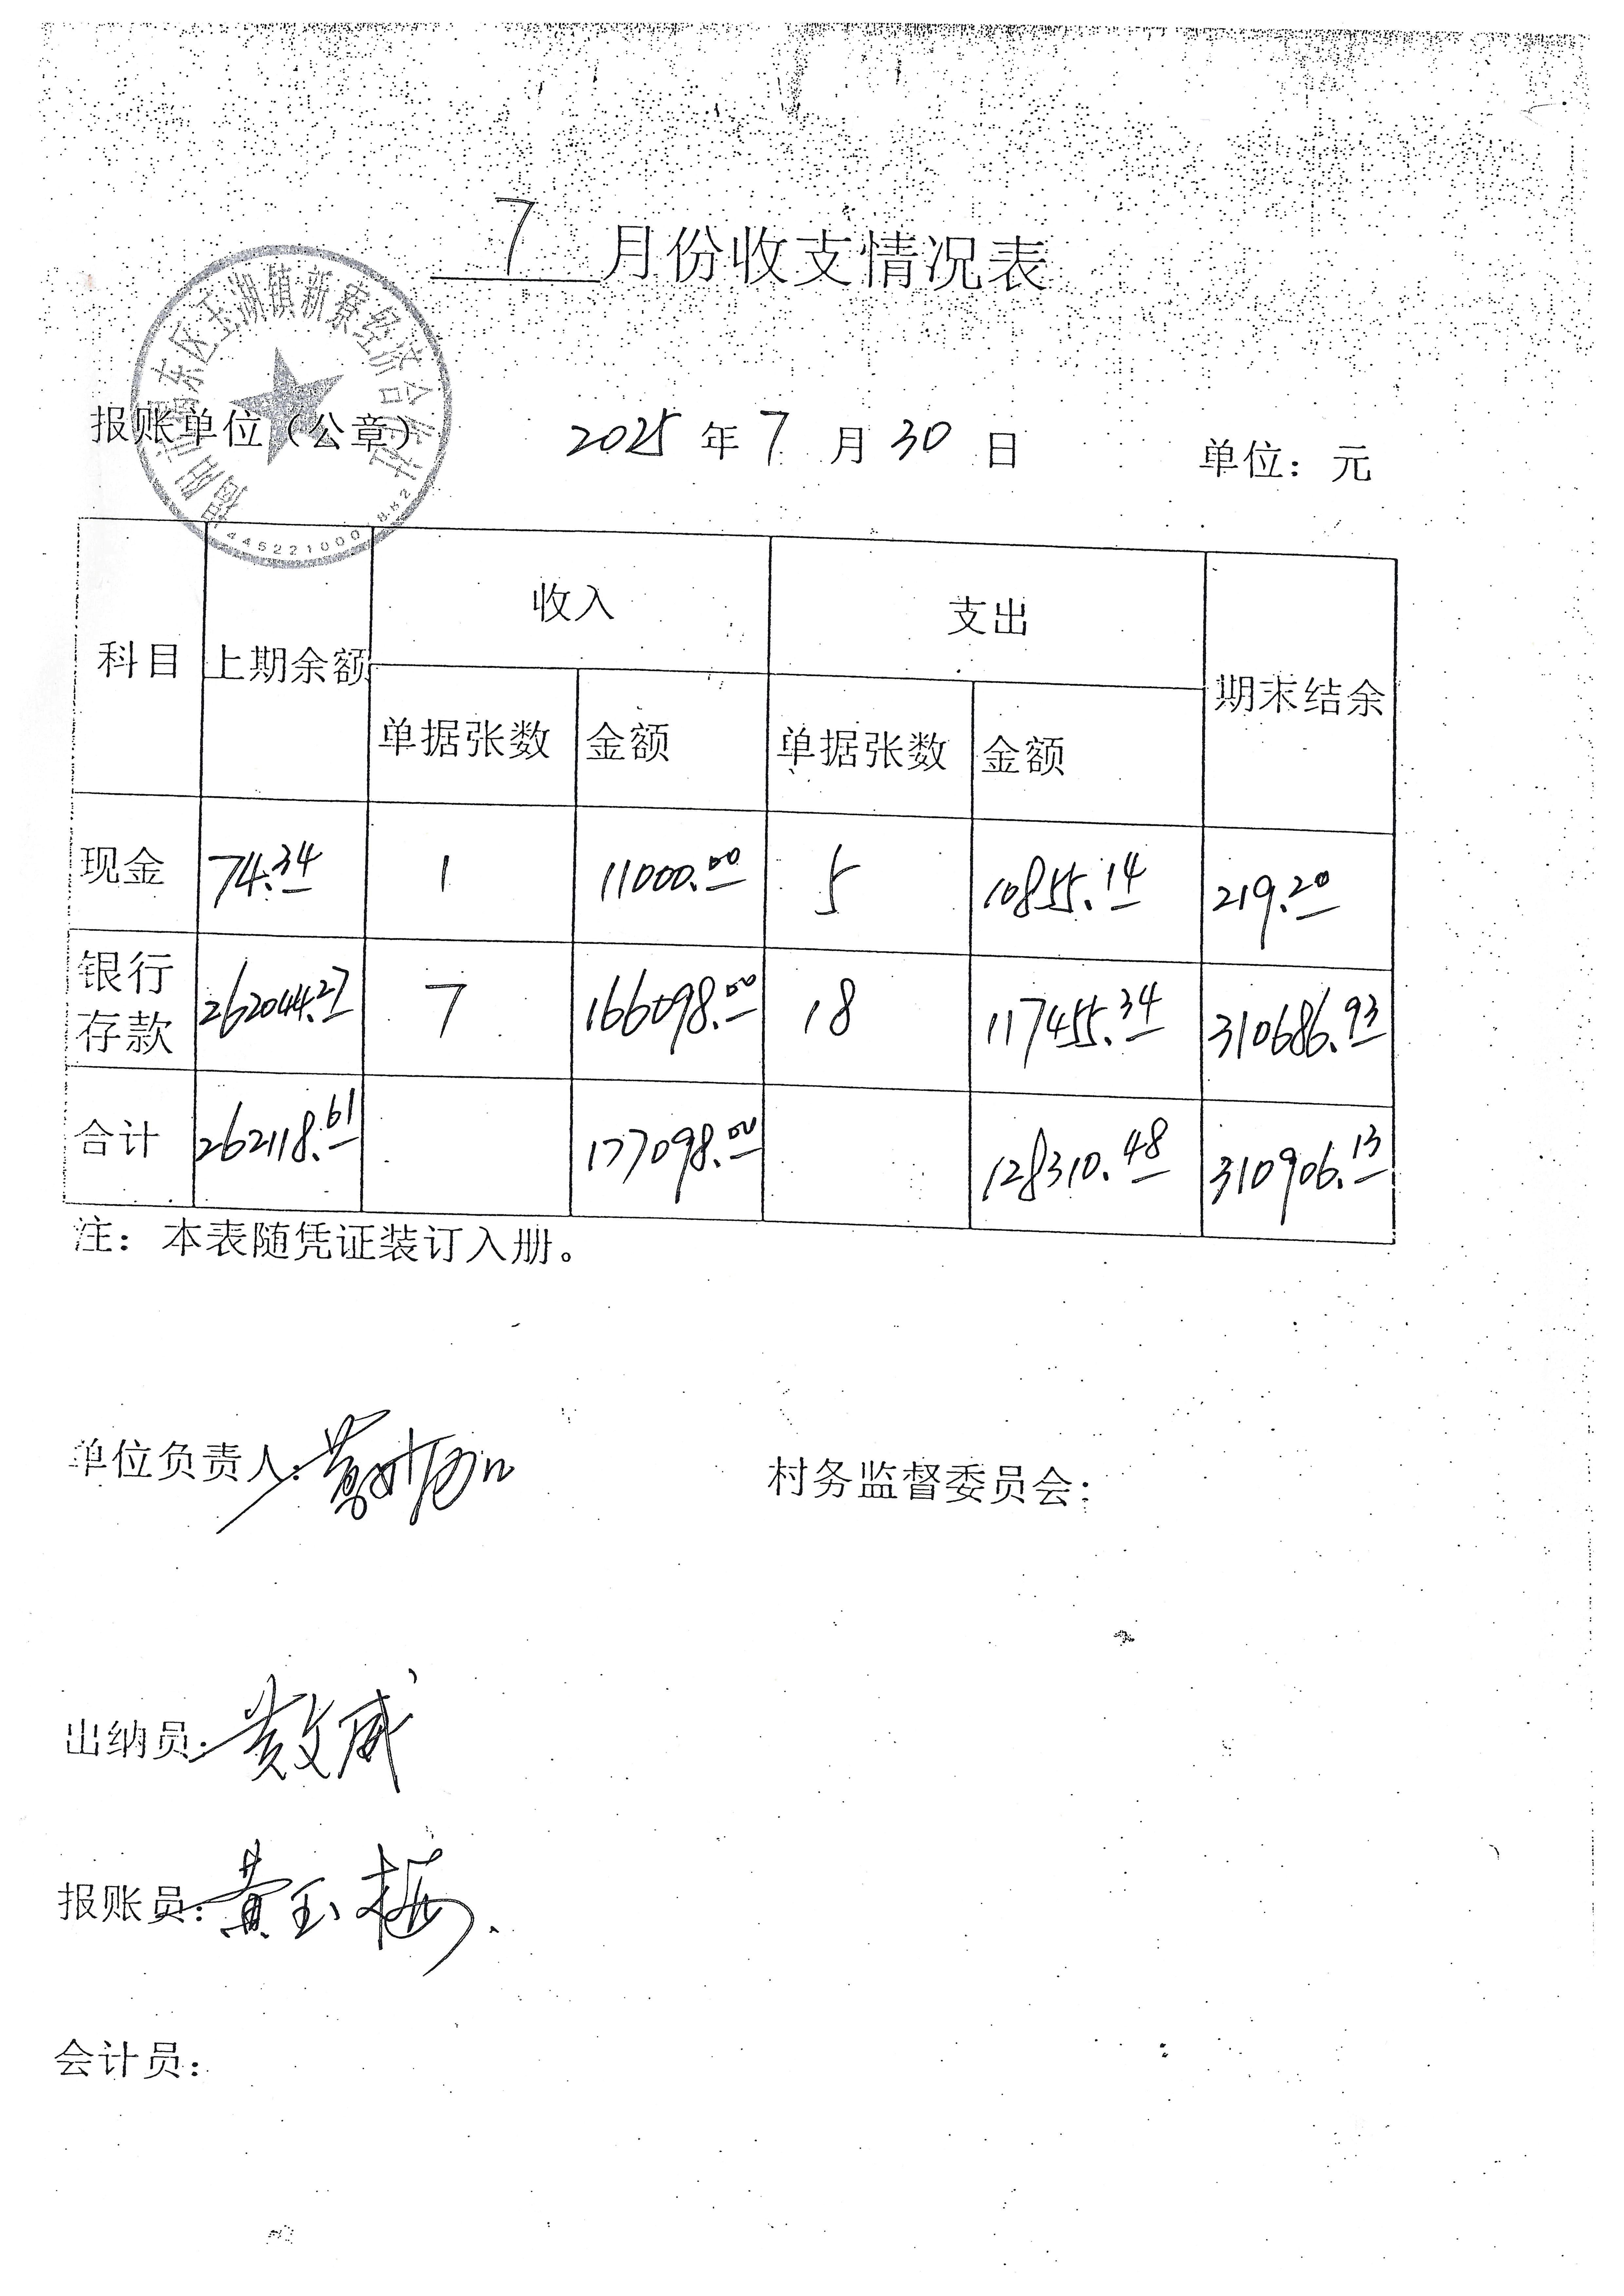 7 月份收支情况表
揭阳市揭东区玉湖镇新寮经济合作社
445221000 882
报账单位（公章） 2025 年 7 月 30 日 单位：元
科目 上期余额 收入 支出 期末结余
单据张数 金额 单据张数 金额
现金 74.34 1 11000.00 5 10855.14 219.20
银行存款 262044.27 7 166098.00 18 117455.34 310686.93
合计 262118.61 177098.00 128310.48 310906.13
注：本表随凭证装订入册。
单位负责人： 村务监督委员会：
出纳员：
报账员：黄玉梅
会计员：